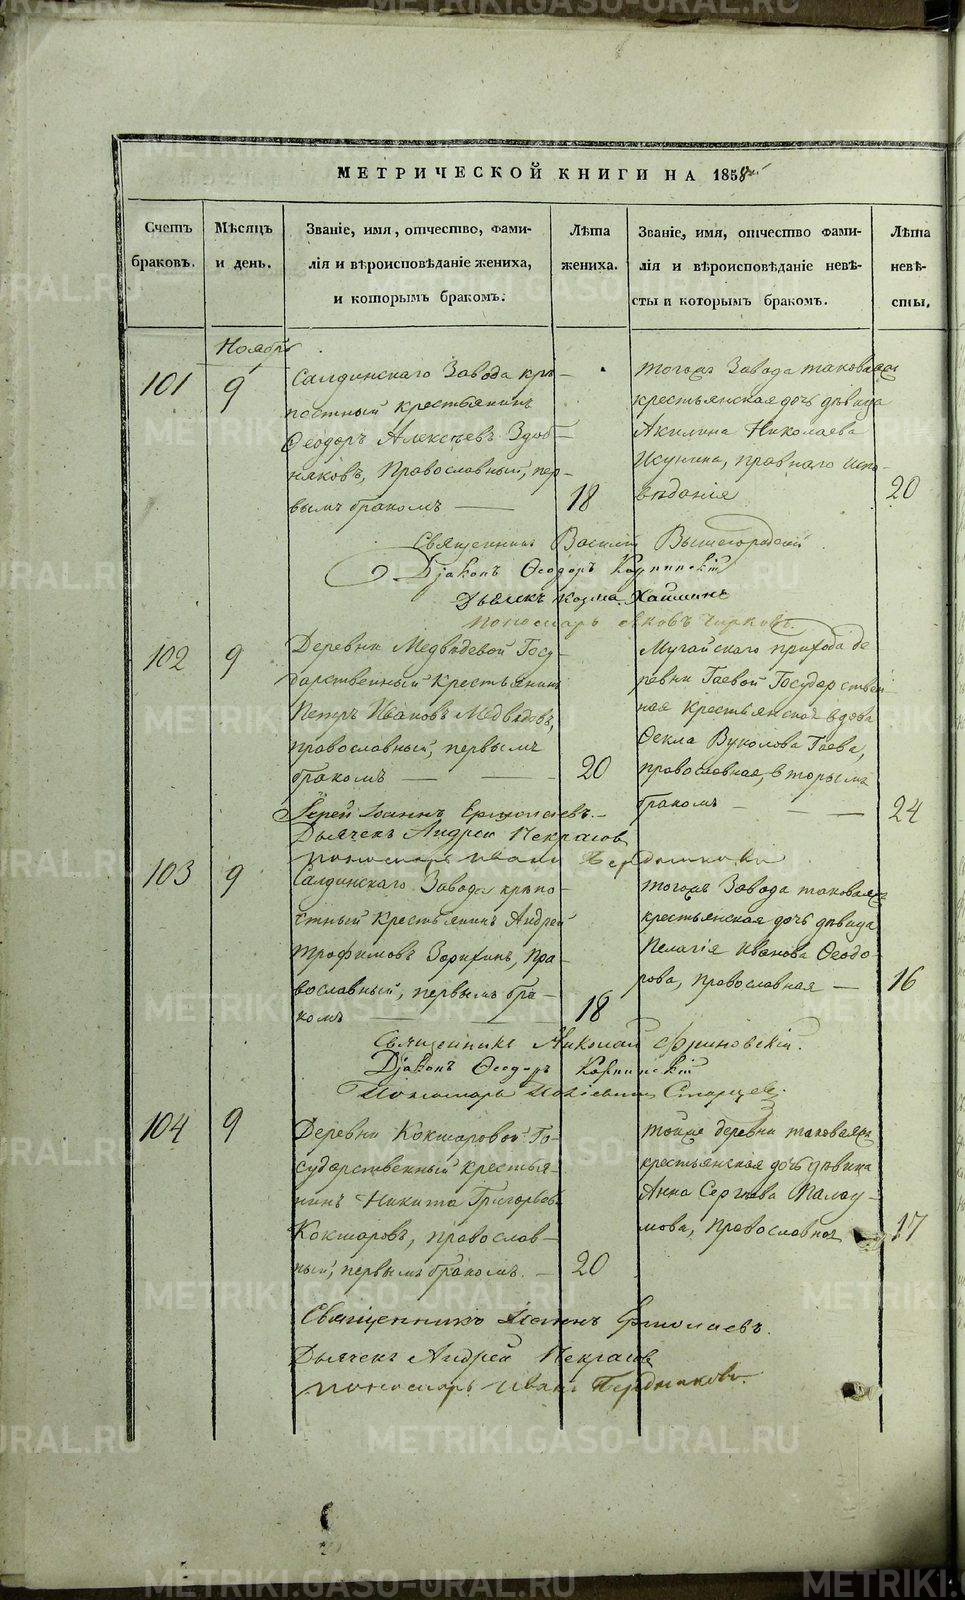 МЕТРИЧЕСКОЙ КНИГИ НА 1858
Счетъ браковъ.
Мѣсяцъ и день.
Званіе, имя, отчество, фами-
лія и вѣроисповѣданіе жениха,
и которымъ бракомъ.
Лѣта жениха.
Званіе, имя, отчество фами-
лія и вѣроисповѣданіе невѣ-
сты и которымъ бракомъ.
Лѣта невѣ-
сты.
Ноябрь
101
9
Салдинскаго Завода крѣ-
постный крестьянинъ
Ѳеодоръ Алексѣевъ Здоб-
няковъ, Православный, пер-
вымъ бракомъ
18
тогожъ Завода таковаяжъ
крестьянская дочь дѣвица
Акилина Николаева
испо-
веданія
20
Священникъ Василій Вышегородскій
Діаконъ Ѳеодоръ
Дьячекъ Козма
Пономарь Чирковъ
102
9
Деревни Медвѣдевой Госу-
дарственный Крестьянинъ
Петръ Ивановъ Медвѣдевъ,
православный, первымъ
бракомъ
20
Мугайскаго прихода де-
ревни Гаевой Государствен-
ная крестьянская вдова
Ѳекла Вуколова Гаева,
православная, вторымъ
бракомъ
24
Іерей Іоаннъ Ермолаевъ.
Дьячекъ Андрей Некрасов
пономарь Иванъ
103
9
Салдинскаго Завода крѣпо-
стный крестьянинъ Андрей
Трофимовъ Зорихинъ, Пра-
вославный, первымъ бра-
комъ
18
тогожъ Завода таковаяжъ
крестьянская дочь дѣвица
Пелагія Иванова Ѳеодо-
рова, православная
16
Священникъ Николай Флоровскій.
Діаконъ Ѳеодоръ
Пономарь Старцевъ.
104
9
Деревни Кокшаровой Го-
сударственный крестья-
нинъ Никита Григорьевъ
Кокшаровъ, православ-
ный, первымъ бракомъ.
20
тойже деревни таковаяжъ
крестьянская дочь дѣвица
Анна Сергѣева Палау-
мова, Православная
17
Священникъ Іоаннъ Ермолаевъ.
Дьячекъ Андрей Некрасов
пономарь Иванъ
METRIKI.GASO-URAL.RU